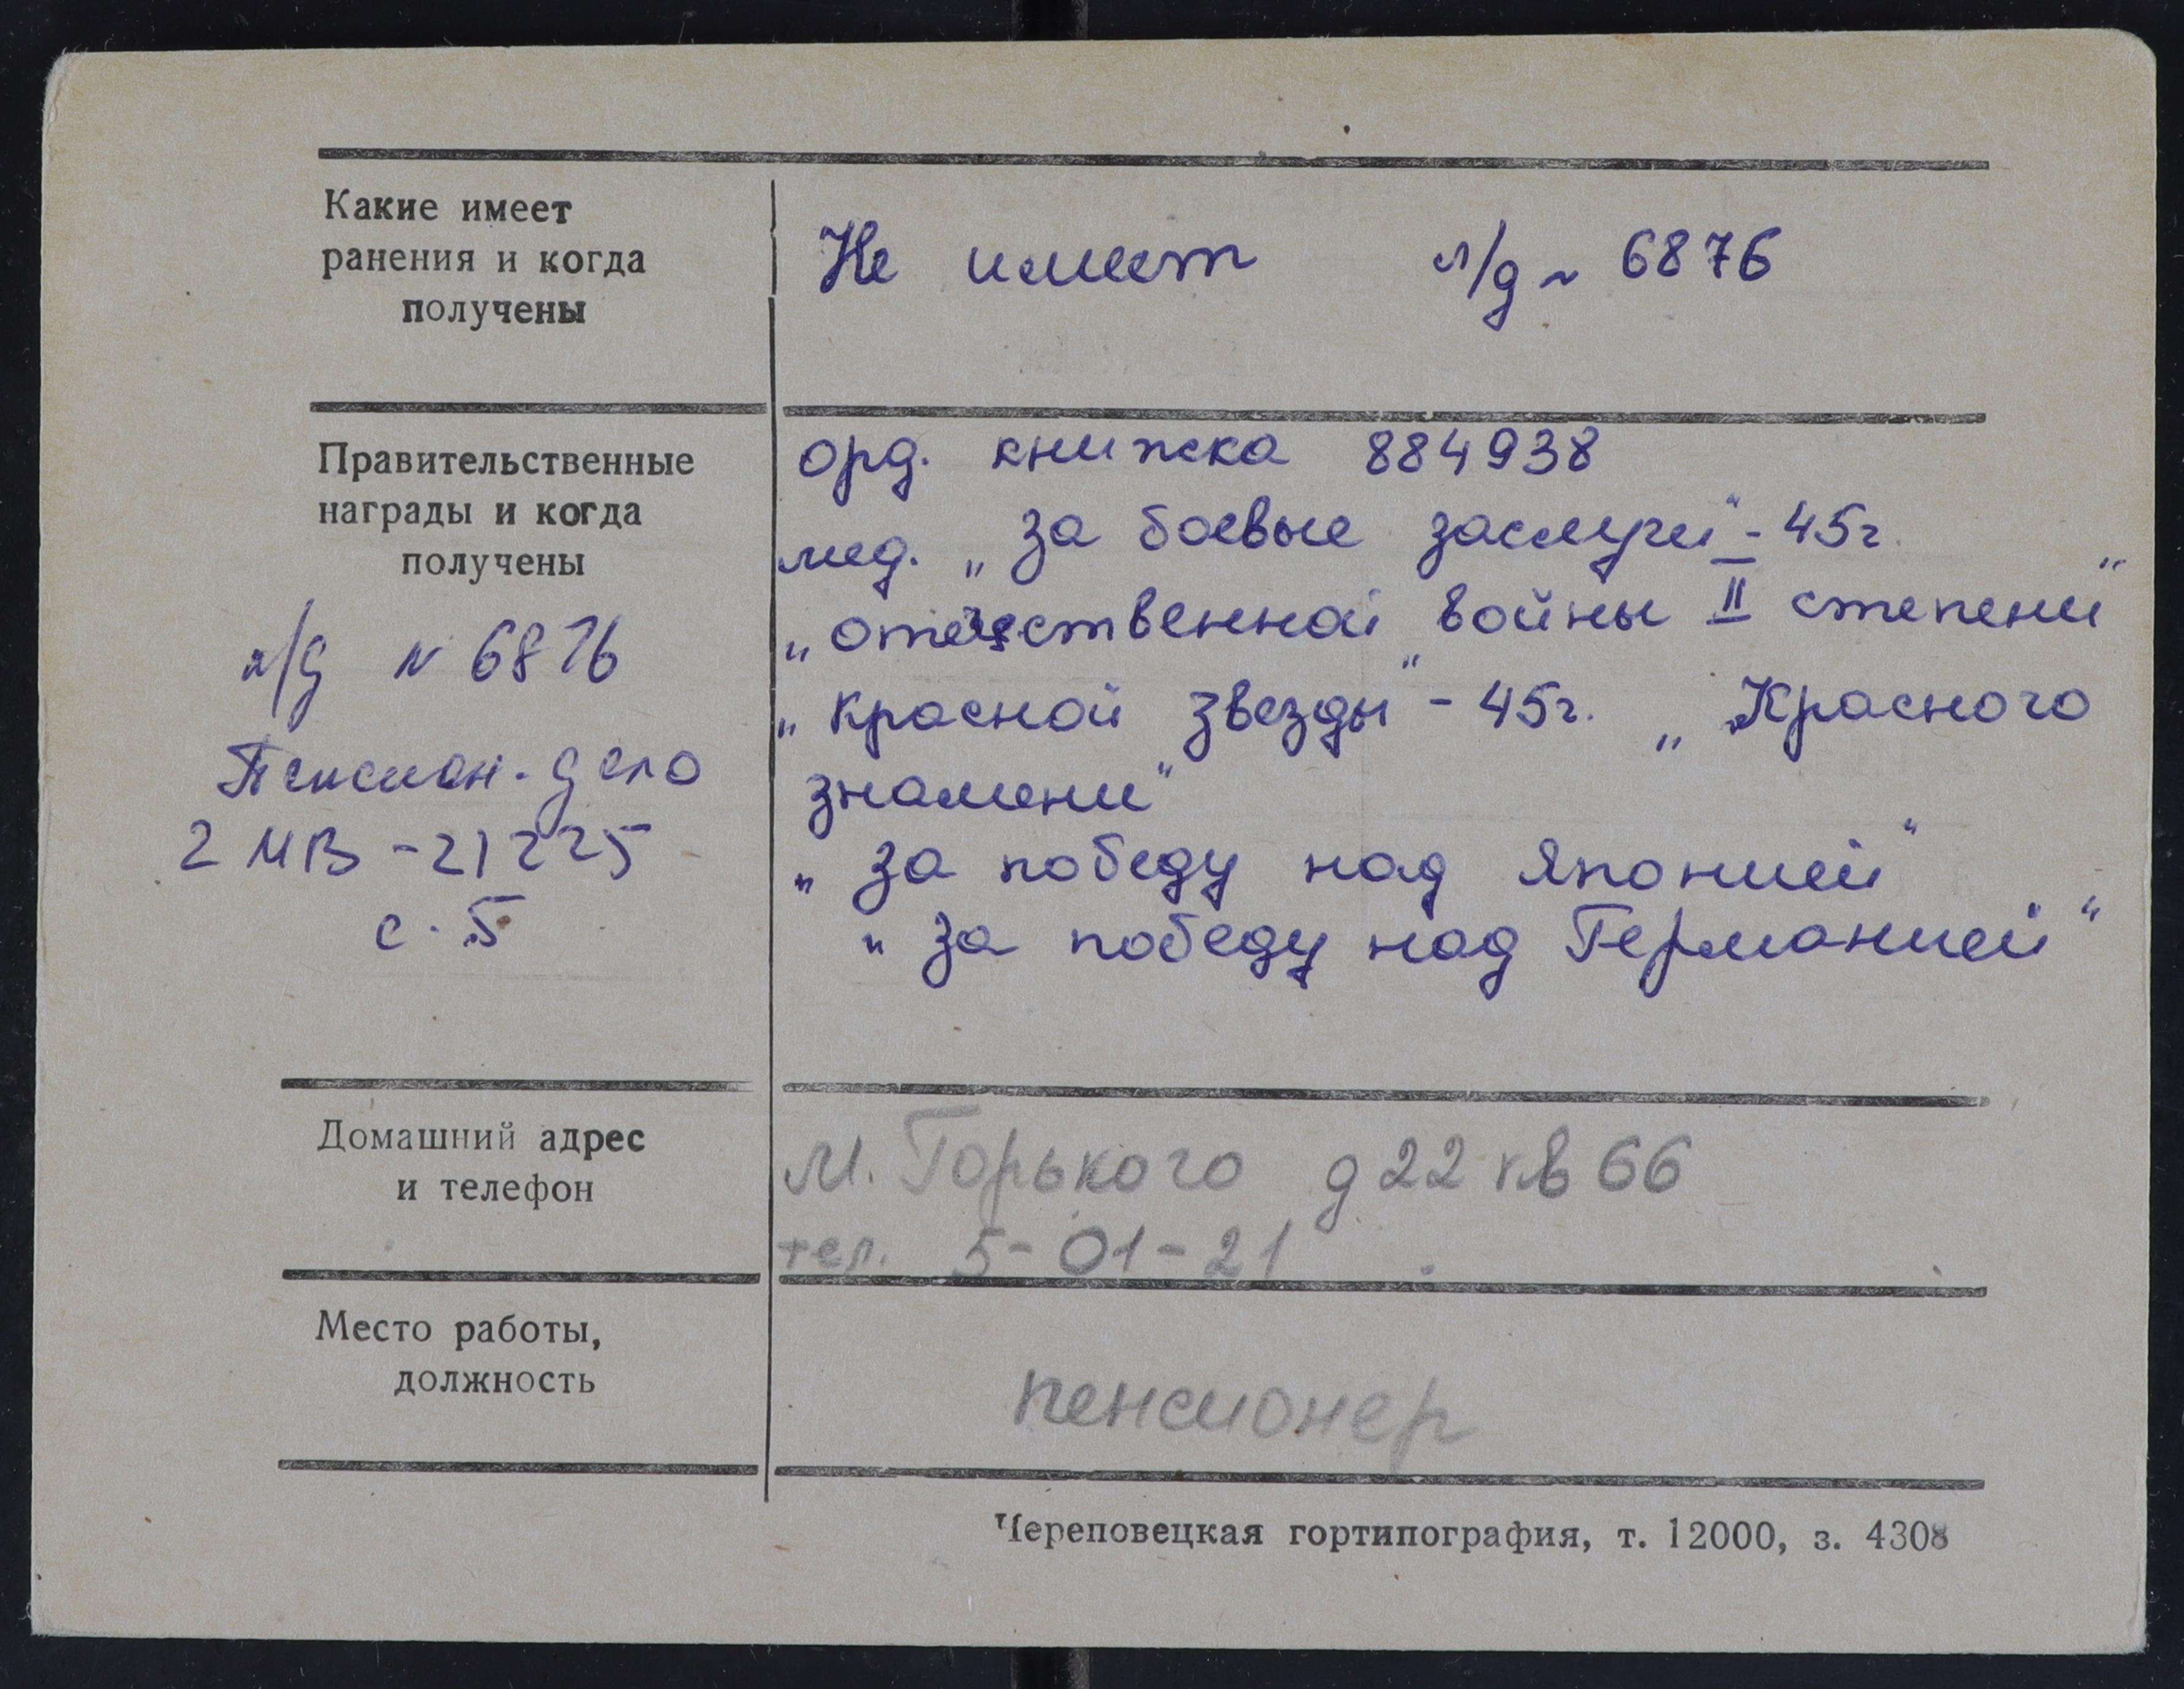 Какие имеет
ранения и когда
получены
Не имеет л/д ~ 6876
Правительственные
награды и когда
получены
л/д N 6876
Пенсион. дело
2 МВ - 21225
с. 5
орд. книжка 884938
мед. „за боевые заслуги" - 45г.
„отечественной войны II степени"
„красной звезды" - 45г. „Красного
знамени"
„за победу над Японией"
„за победу над Германией"
Домашний адрес
и телефон
М. Горького д 22 кв 66
тел. 5-01-21
Место работы,
должность
пенсионер
Череповецкая гортипография, т. 12000, з. 4308